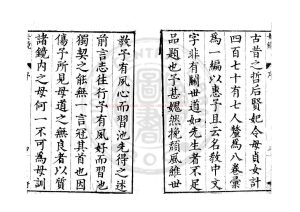 古昔之哲后賢妃令母貞女計
四百七十有七人釐為八卷彙
為一編以惠子且云名教中文
字非有關世道如先生者不足
品題也予甚媿然挽頹風維世
教予有風心而習池先得之述
前言志往行子有風好而習池
獨契之能無一言冠其首也因
傷子所見母道之無良者以質
諸鏡内之母何一不可為母訓